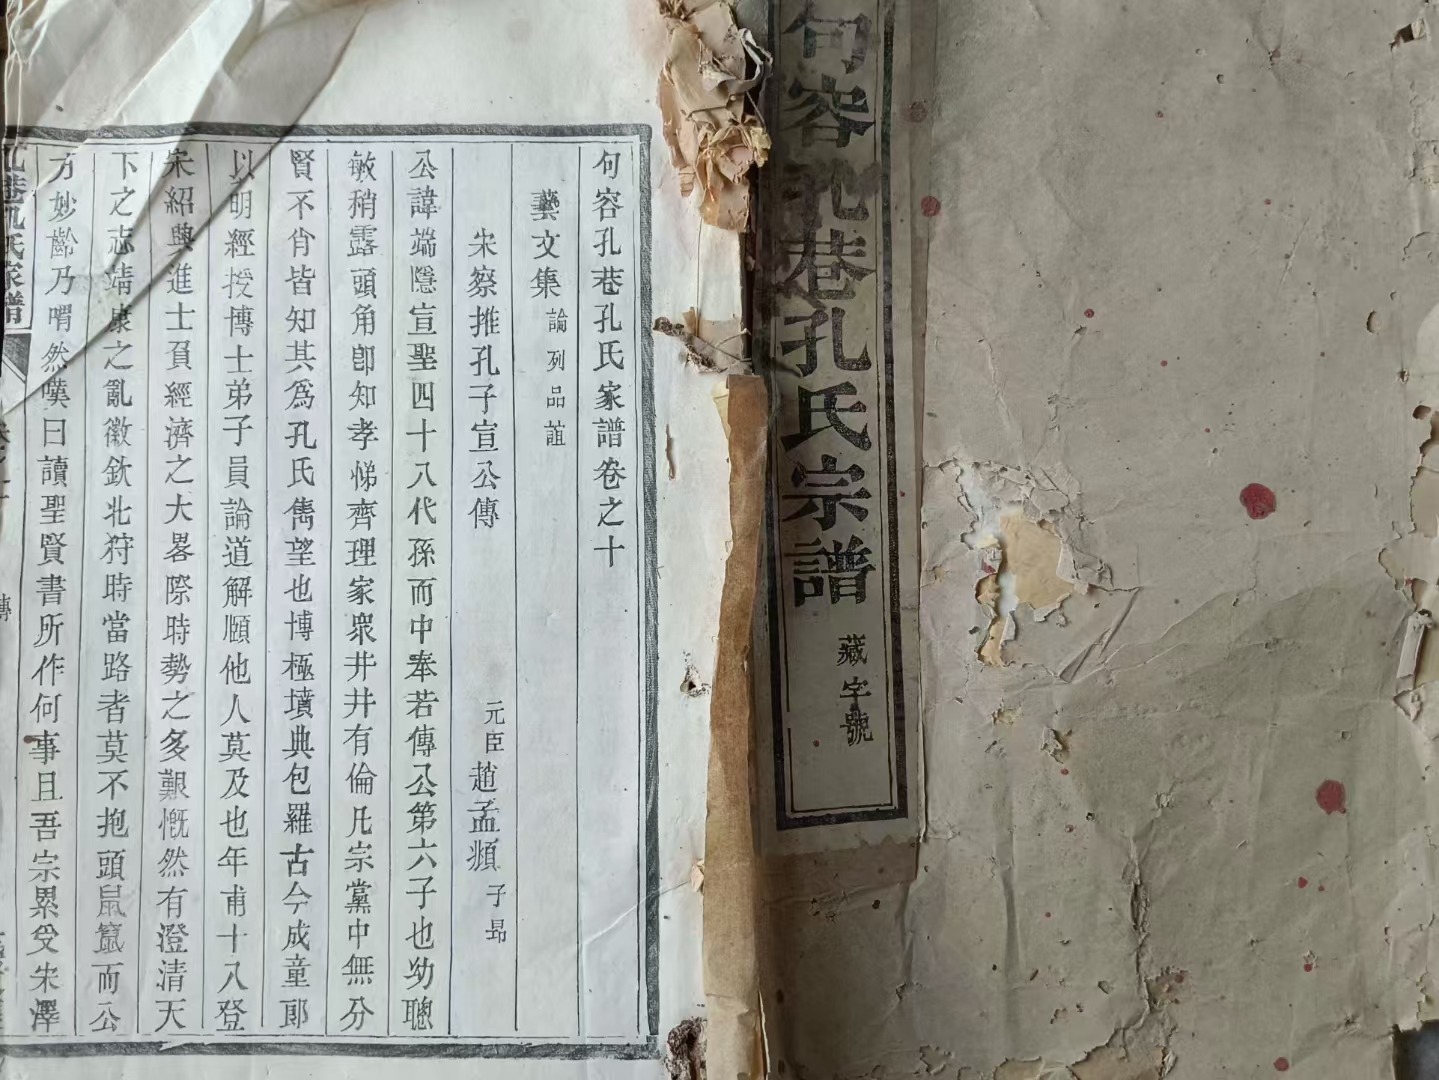 句容孔巷孔氏宗譜
藏字號
句容孔巷孔氏家譜卷之十
藝文集 論列品誼
宋察推孔子宣公傳 元臣趙孟頫子昂
公諱端隱宣聖四十八代孫而中奉若傳公第六子也幼聰
敏稍露頭角卽知孝悌齊理家衆井井有倫凡宗黨中無分
賢不肖皆知其爲孔氏雋望也博極墳典包羅古今成童郎
以明經授博士弟子員論道解頤他人莫及也年甫十八登
宋紹興進士頁經濟之大畧際時勢之多艱慨然有澄清天
下之志靖康之亂徽欽北狩時當路者莫不抱頭鼠竄而公
方妙齡乃喟然嘆曰讀聖賢書所作何事且吾宗累受朱澤
孔巷孔氏家譜
傳